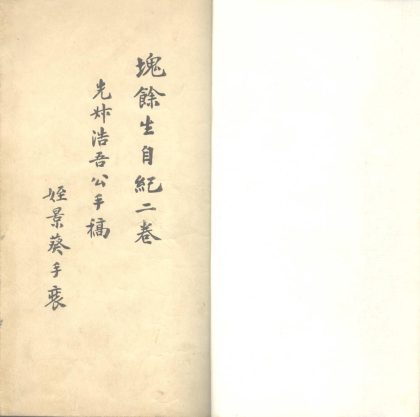 塊餘生自紀二卷
先叔浩吾公手稿
姪景葵手裝